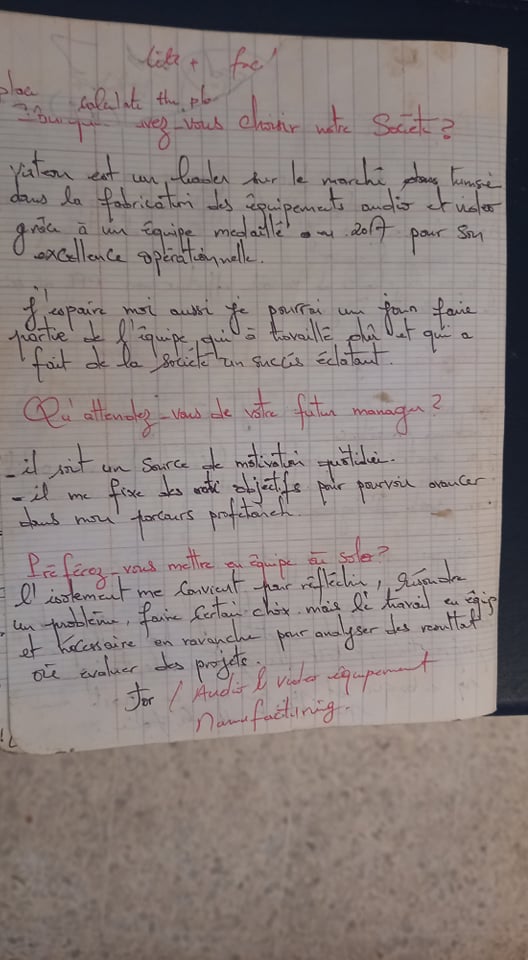 calculate the
vez-vous choisir notre Société?
est un leader sur le marché dans tunisie
dans la fabrication des équipements audio et video
grâce à un équipe medaillé en 2017 pour son
excellence opérationnelle.
J'espaire moi aussi je pourrai un jour faire
partie de l'équipe qui à travaillé dûr et qui a
fait de la société un succès éclatant.
Qu'attendez-vous de votre futur manager?
- il soit un source de motivation quotidien.
- il me fixe des objectifs pour pouvoir avancer
dans mon parcours
Préférez-vous mettre en équipe ou solo?
l'isolement me convient pour réfléchir, résoudre
un problème, faire certain choix. mais le travail en équipe
et nécessaire en ravanche pour analyser des resultat
où évaluer des projets.
for / Audio & video équipement
manufacturing.